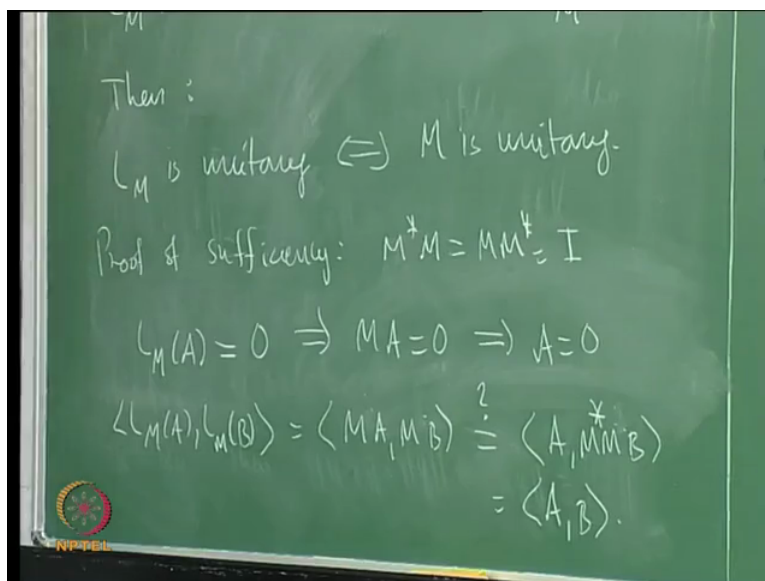 Then :
L_M is unitary ⇔ M is unitary.
Proof of sufficiency: M*M = MM* = I
L_M(A) = 0 ⇒ MA = 0 ⇒ A = 0
⟨L_M(A), L_M(B)⟩ = ⟨MA, MB⟩ ≟ ⟨A, M*MB⟩
= ⟨A, B⟩.
NPTEL